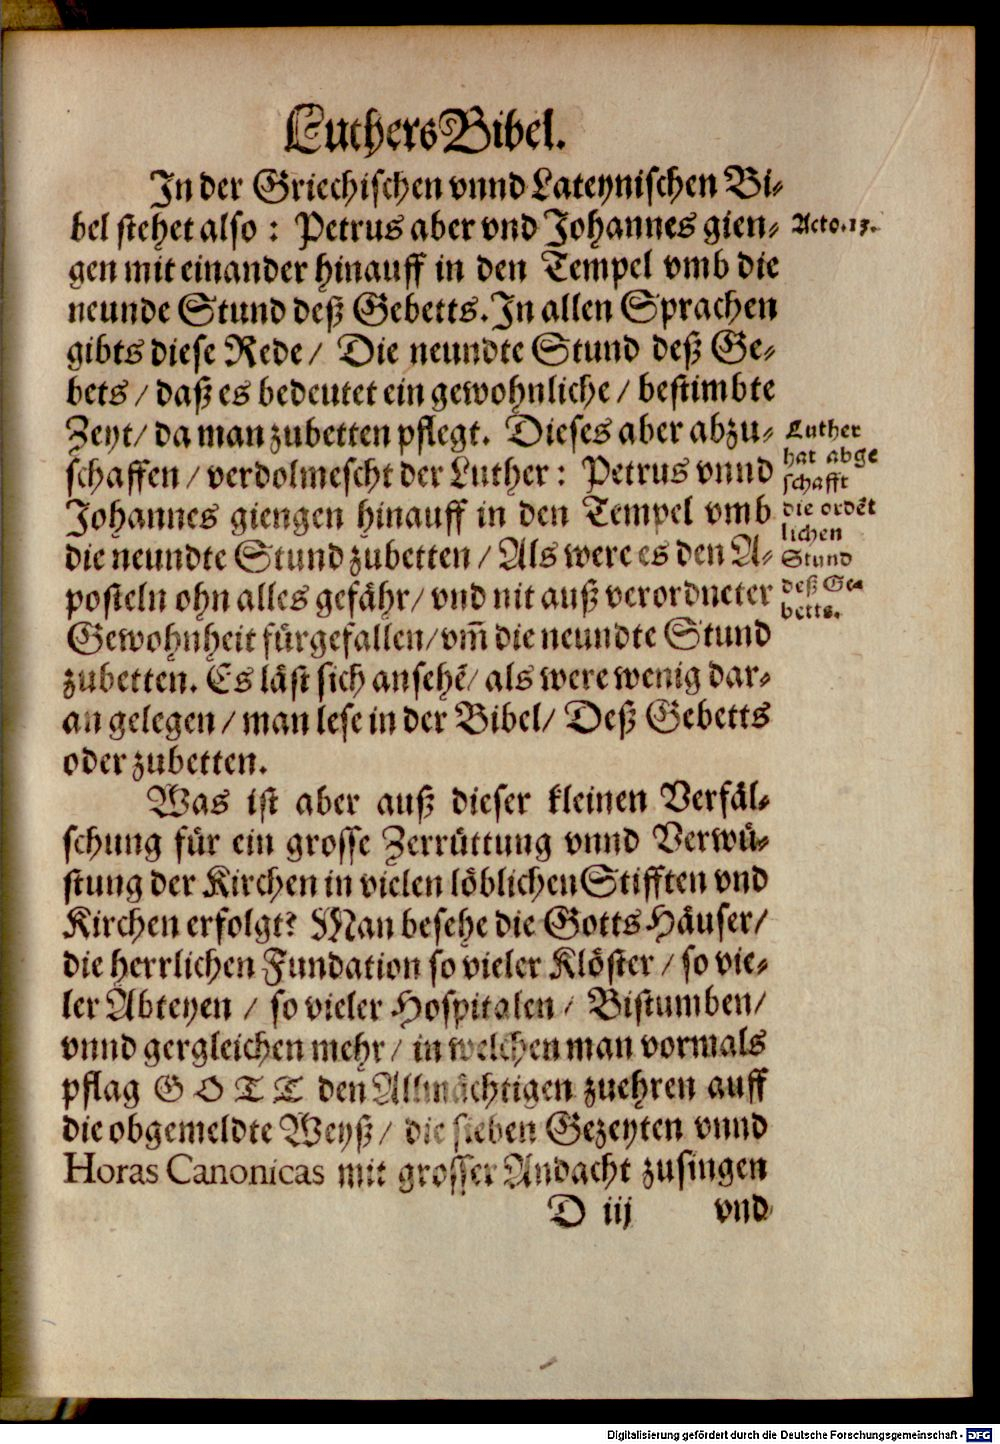 Luthers Bibel.
In der Griechischen vnnd Lateynischen Bi-
bel stehet also : Petrus aber vnd Johannes gien-
gen mit einander hinauff in den Tempel vmb die
neunde Stund deß Gebetts. In allen Sprachen
gibts diese Rede / Die neundte Stund deß Ge-
bets / daß es bedeutet ein gewohnliche / bestimbte
Zeyt / da man zubetten pflegt. Dieses aber abzu-
schaffen / verdolmescht der Luther : Petrus vnnd
Johannes giengen hinauff in den Tempel vmb
die neundte Stund zubetten / Als were es den A-
posteln ohn alles gefähr / vnd nit auß verordneter
Gewohnheit fürgefallen / vm̃ die neundte Stund
zubetten. Es läst sich ansehẽ / als were wenig dar-
an gelegen / man lese in der Bibel / Deß Gebetts
oder zubetten.
Was ist aber auß dieser kleinen Verfäl-
schung für ein grosse Zerrüttung vnnd Verwü-
stung der Kirchen in vielen löblichen Stifften vnd
Kirchen erfolgt? Man besehe die Gotts Häuser /
die herrlichen Fundation so vieler Klöster / so vie-
ler Abteyen / so vieler Hospitalen / Bistumben /
vnnd gergleichen mehr / in welchen man vormals
pflag GOTT den Allmächtigen zuehren auff
die obgemeldte Weyß / die sieben Gezeyten vnnd
Horas Canonicas mit grosser Andacht zusingen
D iij vnd
Acto.
Luther
hat abge
schafft
die ordẽt
lichen
Stund
deß Ge-
betts.
Digitalisierung gefördert durch die Deutsche Forschungsgemeinschaft - DFG